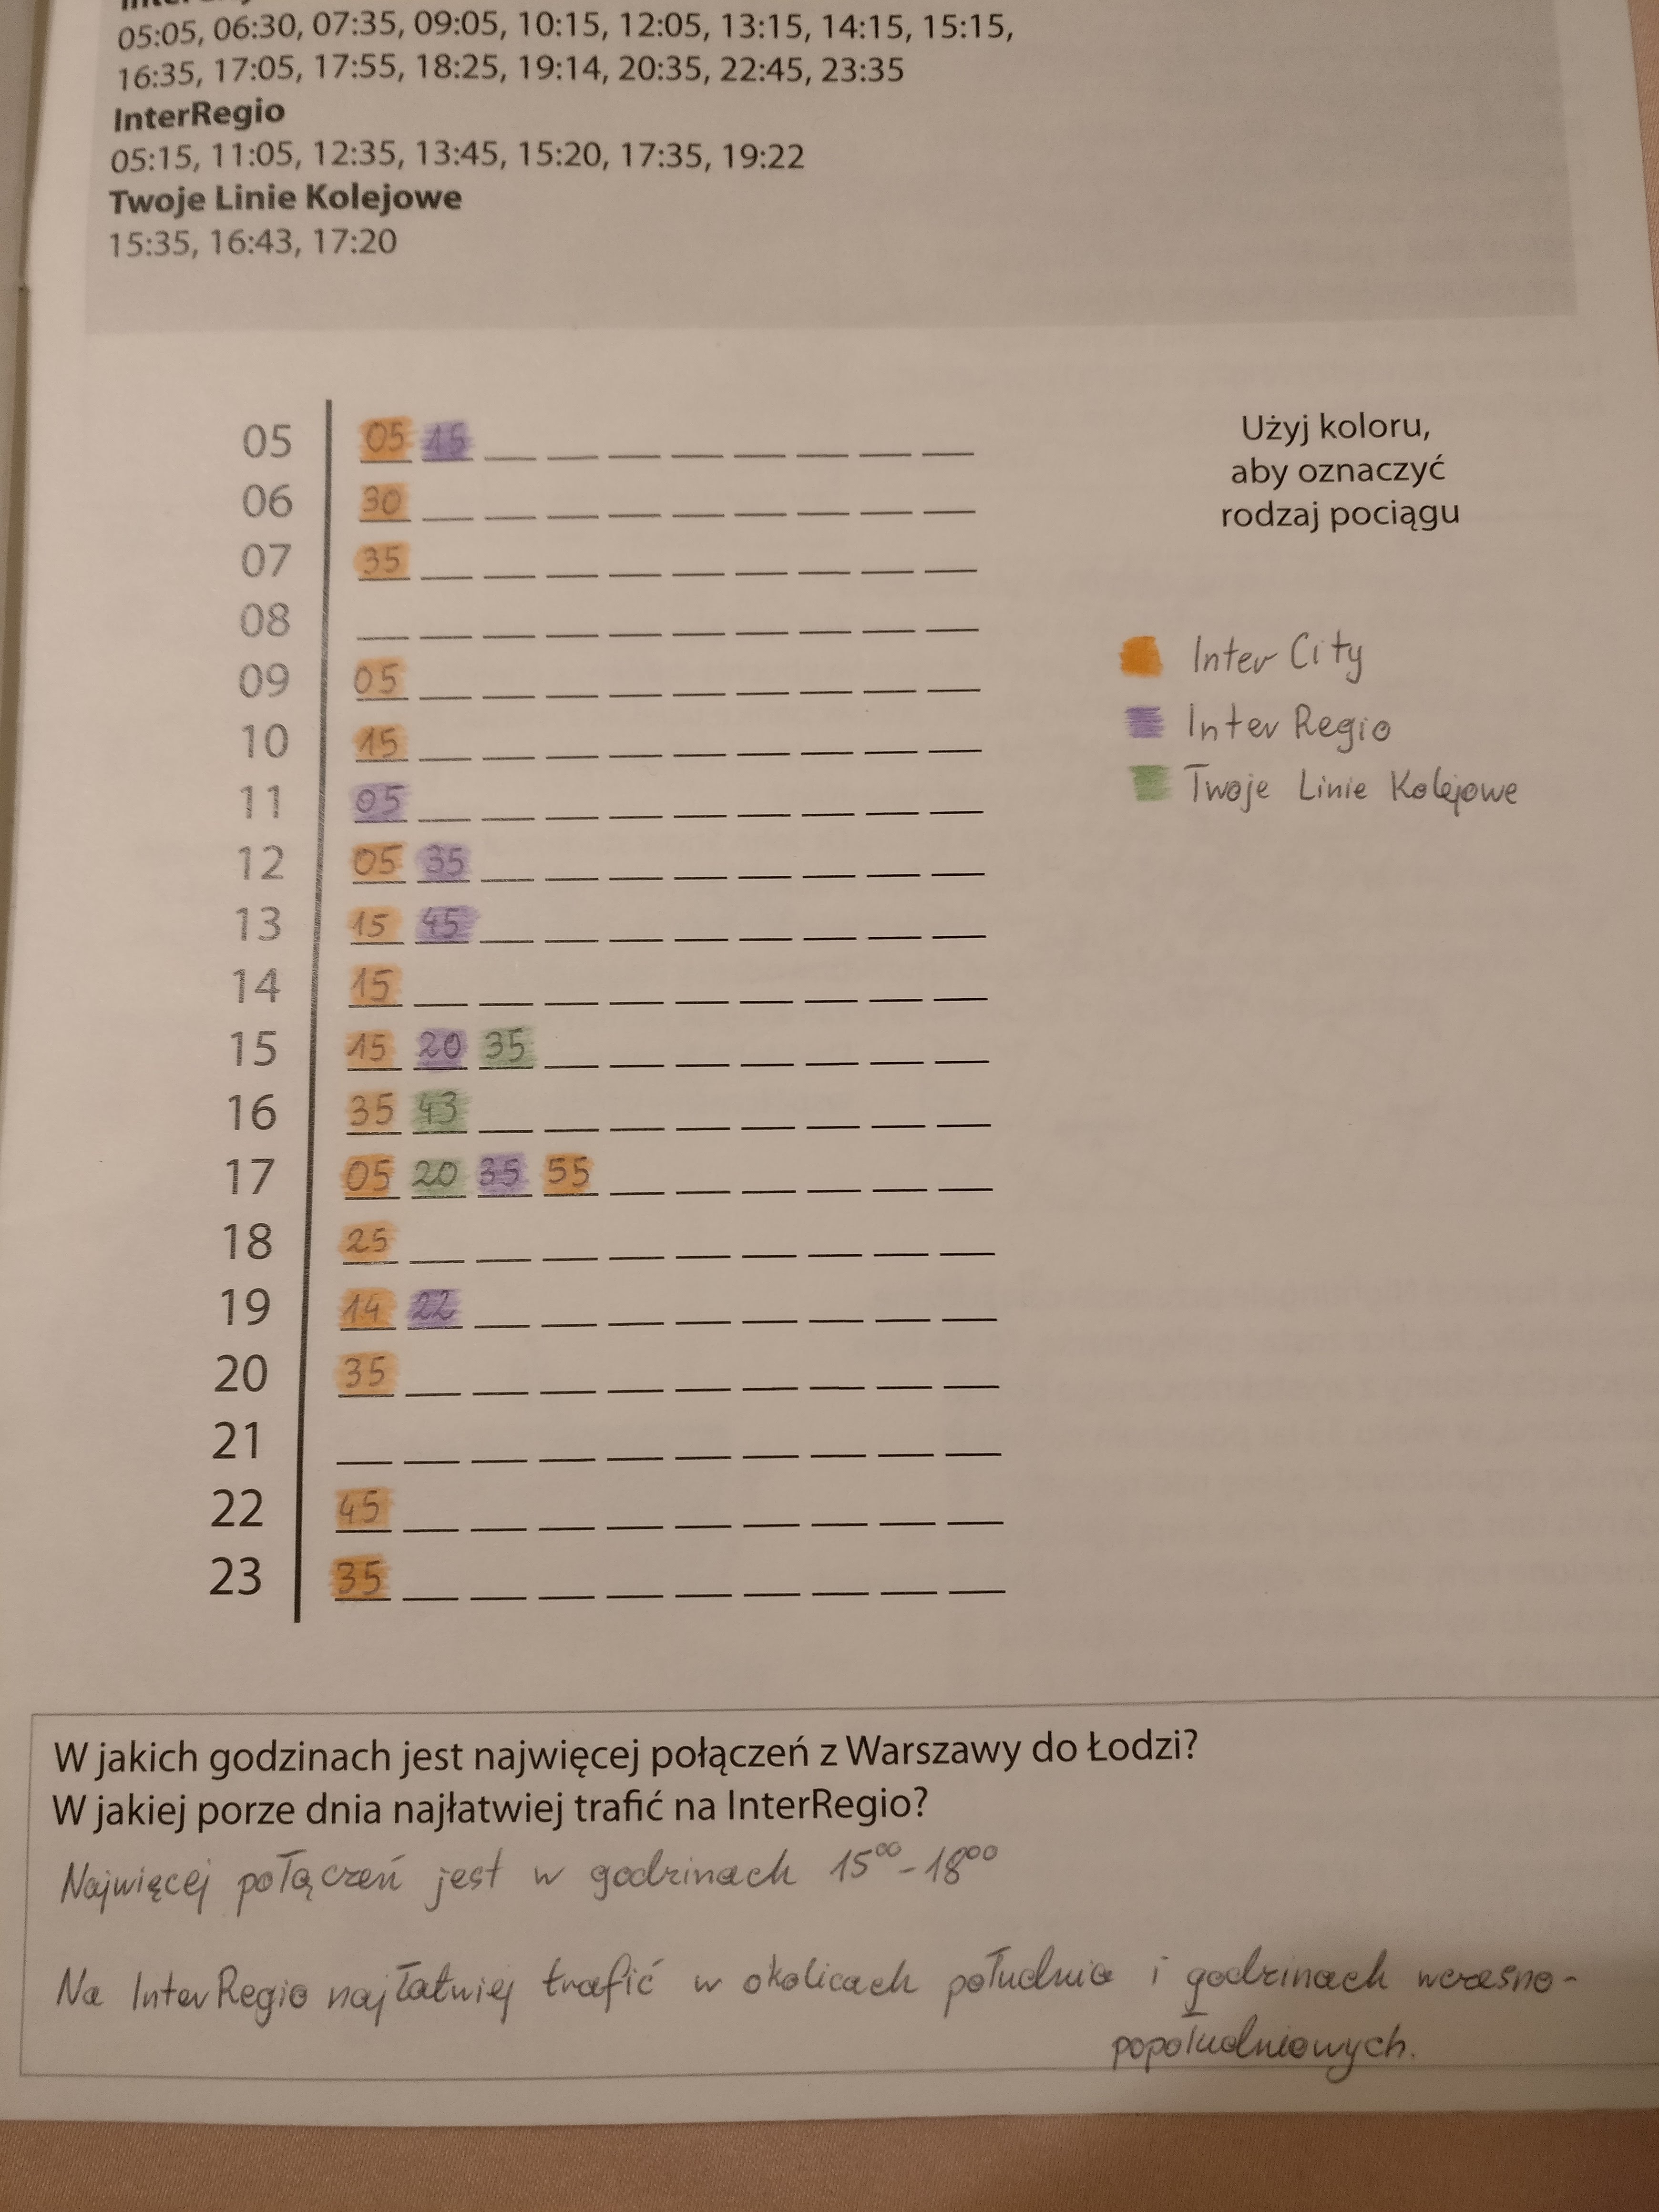 05:05, 06:30, 07:35, 09:05, 10:15, 12:05, 13:15, 14:15, 15:15,
16:35, 17:05, 17:55, 18:25, 19:14, 20:35, 22:45, 23:35
InterRegio
05:15, 11:05, 12:35, 13:45, 15:20, 17:35, 19:22
Twoje Linie Kolejowe
15:35, 16:43, 17:20
05 05 15
06 30
07 35
08
09 05
10 15
11 05
12 05 35
13 15 45
14 15
15 15 20 35
16 35 43
17 05 20 35 55
18 25
19 14 22
20 35
21
22 45
23 35
Użyj koloru,
aby oznaczyć
rodzaj pociągu
Inter City
Inter Regio
Twoje Linie Kolejowe
W jakich godzinach jest najwięcej połączeń z Warszawy do Łodzi?
W jakiej porze dnia najłatwiej trafić na InterRegio?
Najwięcej połączeń jest w godzinach 15⁰⁰-18⁰⁰
Na InterRegio najłatwiej trafić w okolicach południa i godzinach wczesno-
popołudniowych.